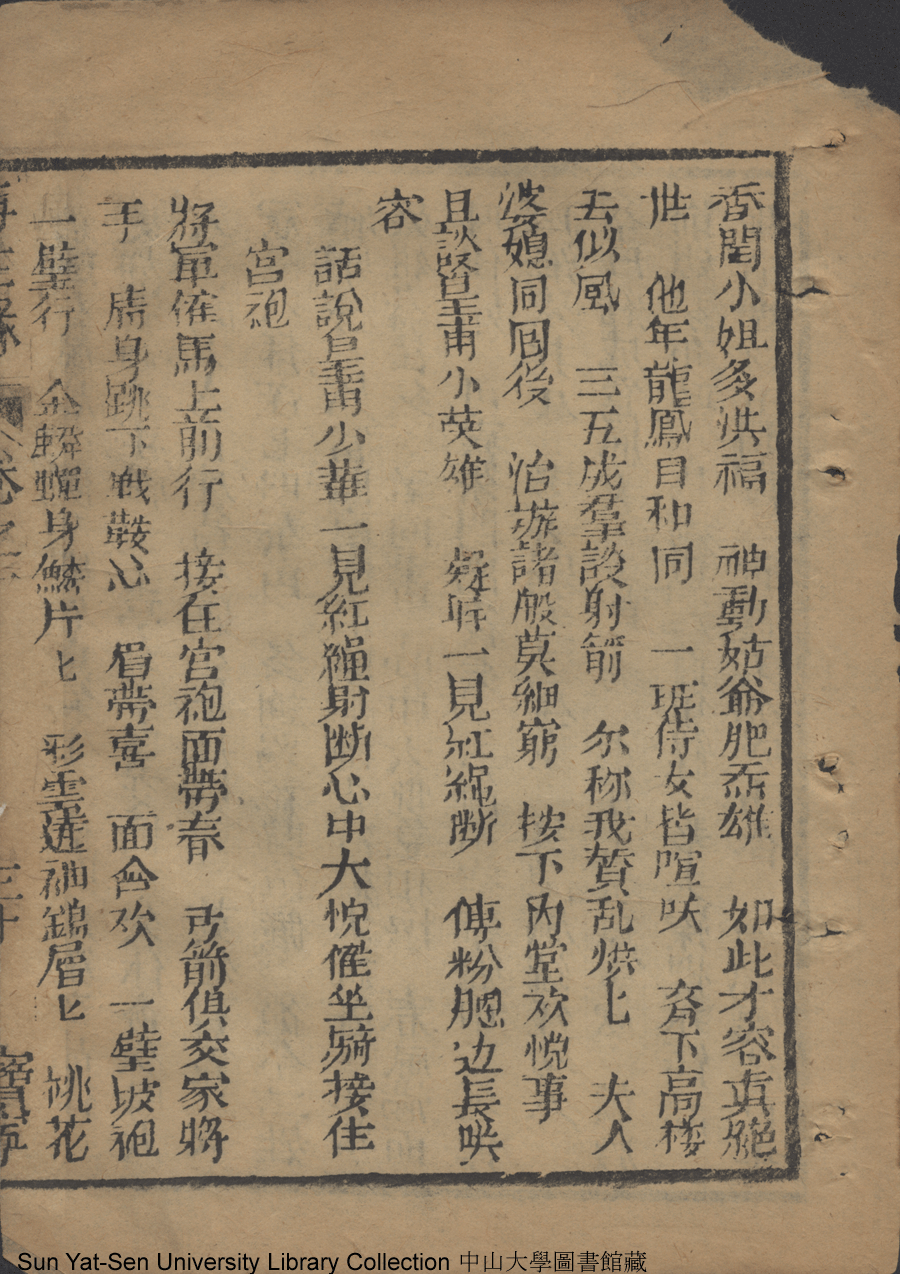 香閨小姐多洪福　神動姑爺肥丕雄　如此才容真絶
世　他年龍鳳自和同　一班侍女皆喧哄　齐下高楼
去似風　三五成羣談射箭　尔称我赞乱烘匕　夫人
婆媳同囘後　治游諸般莫細窮　按下内堂欢悦事
且談皇甫小英雄　凝眸一見紅繩断　傅粉腮边長咲
容
話說皇甫少華一見紅繩射断心中大悦催坐騎接住
宫袍
將軍催馬上前行　接在宫袍面帶春　弓箭俱交家將
手　虎身跳下戰鞍心　眉帶喜　面含欢　一壁披袍
一壁行　金蟒蟬身鱗片匕　彩雲遮袖錦層匕　桃花
再生缘　卷之　三十
Sun Yat-Sen University Library Collection 中山大學圖書館藏